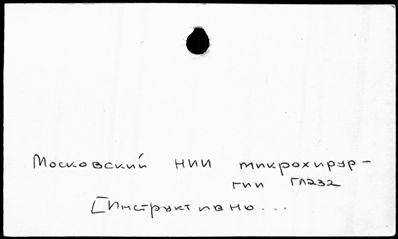 Московский НИИ микрохирур-
гии глаза
[Инструктивно...